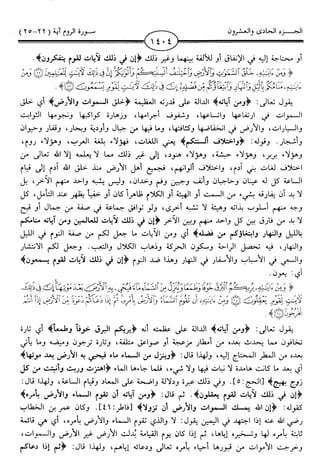 الجزء الحادى والعشرون
١٤٠٤
سورة الروم آية (٢٢-٢٥)
أو محتاجة إليه في الإنفاق أو للألفة بينهما وغير ذلك ﴿إن في ذلك لآيات لقوم يتفكرون﴾.
يقول تعالى: ﴿ومن آياته﴾ الدالة على قدرته العظيمة ﴿خلق السموات والأرض﴾ أي خلق
السموات في ارتفاعها واتساعها، وشفوف أجرامها، وزهارة كواكبها ونجومها الثوابت
والسيارات، والأرض في انخفاضها وكثافتها، وما فيها من جبال وأودية وبحار، وقفار وحيوان
وأشجار. وقوله: ﴿واختلاف ألسنتكم﴾ يعني اللغات، فهؤلاء بلغة العرب، وهؤلاء روم،
وهؤلاء بربر، وهؤلاء حبشة، وهؤلاء هنود، إلى غير ذلك مما لا يعلمه إلا الله تعالى من
اختلاف لغات بني آدم، واختلاف ألوانهم، فجميع أهل الأرض منذ خلق الله آدم إلى قيام
الساعة كل له عينان وحاجبان وأنف وجبين وفم وخدان، وليس يشبه واحد منهم الآخر، بل
لا بد أن يفارقه بشيء من السمت أو الهيئة أو الكلام ظاهراً كان أو خفياً يظهر عند التأمل، كل
وجه منهم أسلوب بذاته وهيئة لا تشبه أخرى، ولو توافق جماعة في صفة من جمال أو قبح
لا بد من فارق بين كل واحد منهم وبين الآخر ﴿إن في ذلك لآيات للعالمين ومن آياته منامكم
بالليل والنهار وابتغاؤكم من فضله﴾ أي ومن الآيات ما جعل لكم من صفة النوم في الليل
والنهار، فيه تحصل الراحة وسكون الحركة وذهاب الكلال والتعب. وجعل لكم الانتشار
والسعي في الأسباب والأسفار في النهار وهذا ضد النوم ﴿إن في ذلك لآيات لقوم يسمعون﴾
أي: يعون.
يقول تعالى: ﴿ومن آياته﴾ الدالة على عظمته أنه ﴿يريكم البرق خوفاً وطمعاً﴾ أي تارة
تخافون مما يحدث بعده من أمطار مزعجة أو صواعق متلفة، وتارة ترجون وميضه وما يأتي
بعده من المطر المحتاج إليه، ولهذا قال: ﴿وينزل من السماء ماء فيحيي به الأرض بعد موتها﴾
أي بعد ما كانت هامدة لا نبات فيها ولا شيء، فلما جاءها الماء ﴿اهتزت وربت وأنبتت من كل
زوج بهيج﴾ [الحج: ٥]. وفي ذلك عبرة ودلالة واضحة على المعاد وقيام الساعة، ولهذا قال:
﴿إن في ذلك لآيات لقوم يعقلون﴾. ثم قال: ﴿ومن آياته أن تقوم السماء والأرض بأمره﴾
كقوله: ﴿إن الله يمسك السموات والأرض أن تزولا﴾ [فاطر: ٤١]. وكان عمر بن الخطاب
رضي الله عنه إذا اجتهد في اليمين يقول: لا والذي تقوم السماء والأرض بأمره، أي هي قائمة
ثابتة بأمره لها وتسخيره إياها، ثم إذا كان يوم القيامة بُدلت الأرض غير الأرض والسموات،
وخرجت الأموات من قبورها أحياء بأمره تعالى ودعائه إياهم، ولهذا قال: ﴿ثم إذا دعاكم